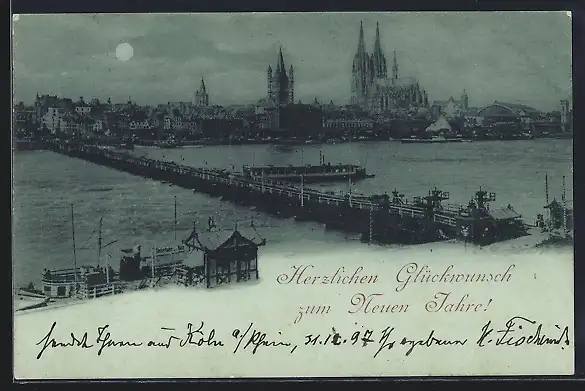 Herzlichen Glückwunsch
zum Neuen Jahre!
sendet Ihnen aus Köln a/Rhein, 31.12.97 Ihr ergebener H.